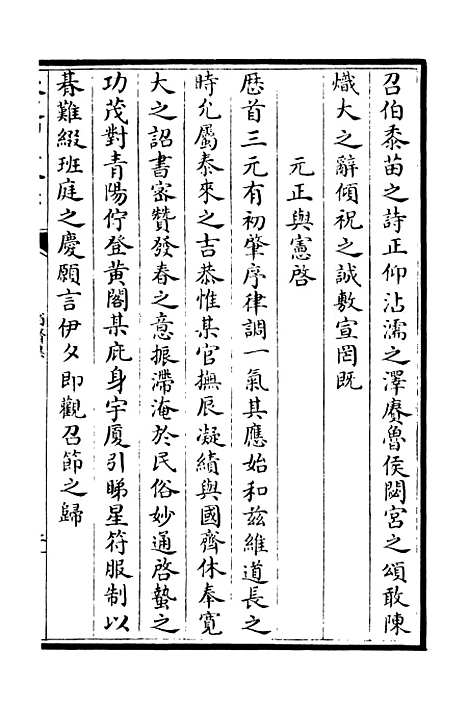 召伯黍苗之詩正仰沾濡之澤賡魯侯閟宮之頌敢陳
熾大之辭傾祝之誠敷宣罔既
元正與憲啓
歴首三元有初肇序律調一氣其應始和兹維道長之
時允屬泰來之吉恭惟某官撫辰凝績與國齊休奉寛
大之詔書密贊發春之意振滯淹於民俗妙通啓蟄之
功茂對青陽佇登黄閣某庇身宇厦引睇星符服制以
朞難綴班庭之慶願言伊夕即觀召節之歸